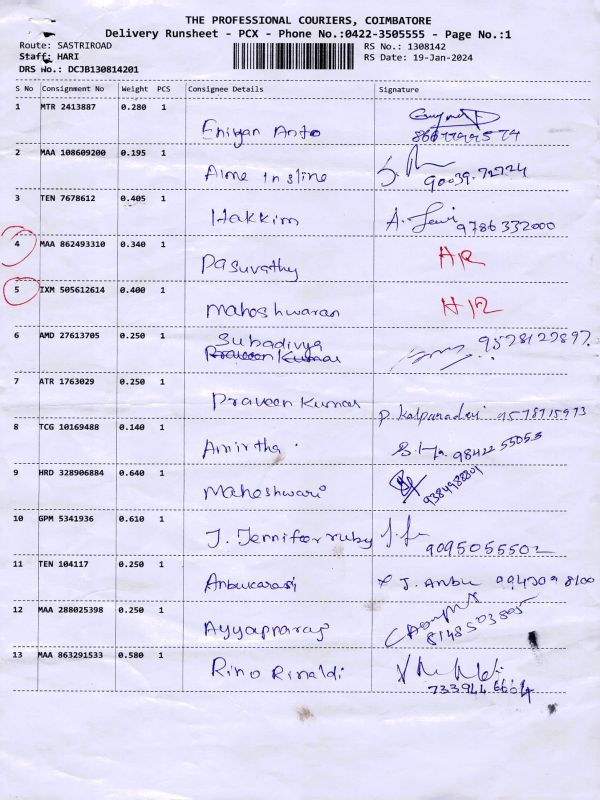 THE PROFESSIONAL COURIERS, COIMBATORE
Delivery Runsheet - PCX - Phone No.:0422-3505555 - Page No.:1
Route: SASTRIROAD RS No.: 1308142
Staff: HARI RS Date: 19-Jan-2024
DRS No.: DCJB130814201
S No Consignment No Weight PCS Consignee Details Signature
1 MTR 2413887 0.280 1 Eniyan Anto
2 MAA 108609200 0.195 1 Aime Insline 90039.72724
3 TEN 7678612 0.405 1 Hakkim 9786332000
4 MAA 862493310 0.340 1 Pasuvathy HR
5 IXM 505612614 0.400 1 Maheshwaran HR
6 AMD 27613705 0.250 1 Subadivya 9528127897
Praveen Kumar
7 ATR 1763029 0.250 1 Praveen Kumar P. Kalpanadevi 9578715973
8 TCG 10169488 0.140 1 Amirtha. 98422 55053
9 HRD 328906884 0.640 1 Maheshwari 9384988801
10 GPM 5341936 0.610 1 J. Jennifer ruby 9095055502
11 TEN 104117 0.250 1 Anbukarasi J. Anbu 994309 8100
12 MAA 288025398 0.250 1 Ayyapparaj 8148503805
13 MAA 863291533 0.580 1 Rino Rinaldi 733944 6604